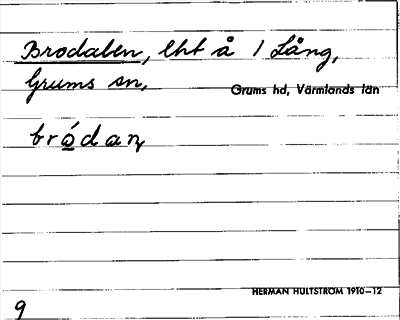 Brodalen, lht å 1 Lång,
Grums sn,
Grums hd, Värmlands län
bródaṇ
HERMAN HULTSTRÖM 1910–12
9